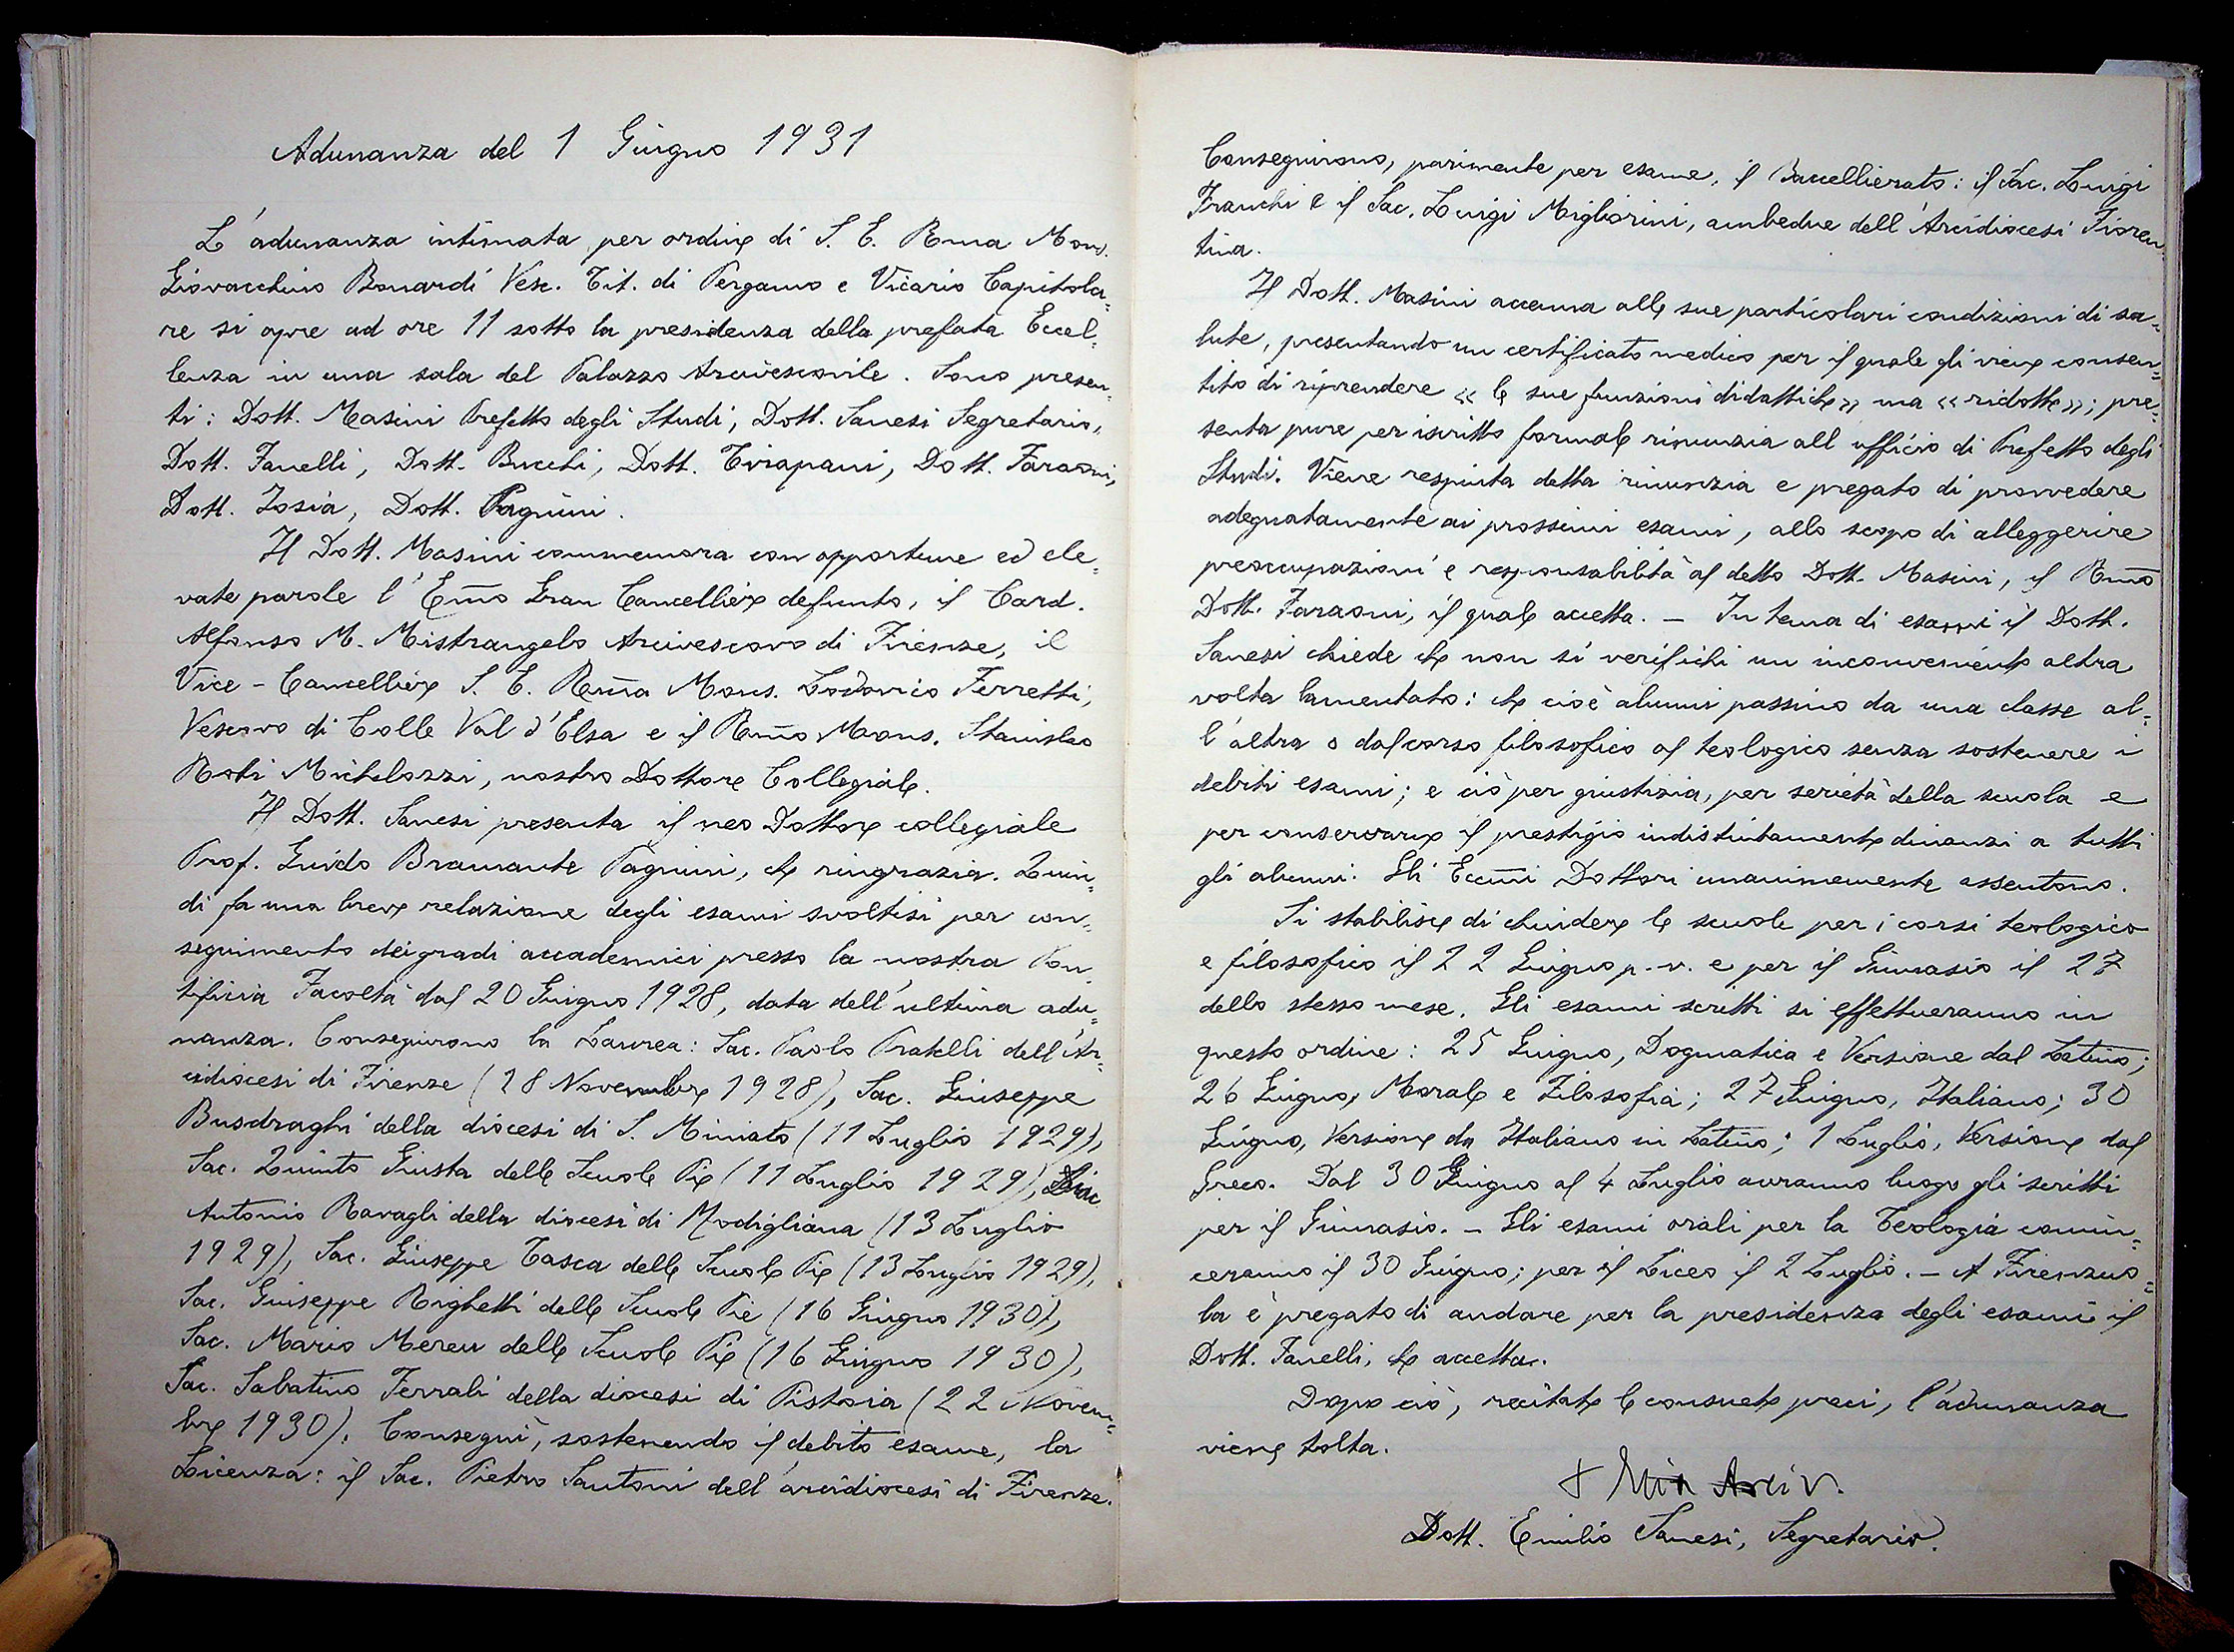 Adunanza del 1 Giugno 1931
L'adunanza intimata per ordine di S. E. Rma Mons.
Giovacchino Bonardi Vesc. Tit. di Pergamo e Vicario Capitola=
re si apre ad ore 11 sotto la presidenza della prefata Eccel=
lenza in una sala del Palazzo Arcivescovile. Sono presen=
ti: Dott. Masini Prefetto degli Studi, Dott. Sanesi Segretario,
Dott. Fanelli, Dott. Bucchi, Dott. Tirapani, Dott. Faraoni,
Dott. Zosia, Dott. Pagnini.
Il Dott. Masini commemora con opportune ed ele=
vate parole l'Em̃o Gran Cancelliere defunto, il Card.
Alfonso M. Mistrangelo Arcivescovo di Firenze, il
Vice-Cancelliere S. E. Rm̃a Mons. Lodovico Ferretti,
Vescovo di Colle Val d'Elsa e il Rm̃o Mons. Stanislao
Roti Michelozzi, nostro Dottore Collegiale.
Il Dott. Sanesi presenta il neo Dottore collegiale
Prof. Guido Bramante Pagnini, che ringrazia. Quin=
di fa una breve relazione degli esami svoltisi per con=
seguimento dei gradi accademici presso la nostra Pon
tificia Facoltà dal 20 Giugno 1928, data dell'ultima adu=
nanza. Conseguirono la Laurea: Sac. Paolo Pratelli dell'Ar=
cidiocesi di Firenze (28 Novembre 1928), Sac. Giuseppe
Busdraghi della diocesi di S. Miniato (11 Luglio 1929),
Sac. Quinto Giusta delle Scuole Pie (11 Luglio 1929),
Antonio Ravagli della diocesi di Modigliana (13 Luglio
1929), Sac. Giuseppe Tasca delle Scuole Pie (13 Luglio 1929),
Sac. Giuseppe Righetti delle Scuole Pie (16 Giugno 1930),
Sac. Mario Mereu delle Scuole Pie (16 Giugno 1930),
Sac. Sabatino Ferrali della diocesi di Pistoia (22 Novem=
bre 1930). Conseguì, sostenendo il debito esame, la
Licenza: il Sac. Pietro Santoni dell'arcidiocesi di Firenze.
Conseguirono, parimente per esame, il Baccellierato: il Sac. Luigi
Franchi e il Sac. Luigi Migliorini, ambedue dell'Arcidiocesi Fioren
tina.
Il Dott. Masini accenna alle sue particolari condizioni di sa=
lute, presentando un certificato medico per il quale gli viene consen=
tito di riprendere « le sue funzioni didattiche » ma « ridotte »; pre=
senta pure per iscritto formale rinunzia all'ufficio di Prefetto degli
Studi. Viene respinta detta rinunzia e pregato di provvedere
adeguatamente ai prossimi esami, allo scopo di alleggerire
preoccupazioni e responsabilità al detto Dott. Masini, il Rm̃o
Dott. Faraoni, il quale accetta. — In tema di esami il Dott.
Sanesi chiede che non si verifichi un inconveniente altra
volta lamentato: che cioè alunni passino da una classe al=
l'altra o dal corso filosofico al teologico senza sostenere i
debiti esami; e ciò per giustizia, per serietà della scuola e
per conservare il prestigio indistintamente dinanzi a tutti
gli alunni. Gli Ecc̃mi Dottori unanimemente assentono.
Si stabilisce di chiudere le scuole per i corsi teologico
e filosofico il 22 Giugno p. v. e per il Ginnasio il 27
dello stesso mese. Gli esami scritti si effettueranno in
questo ordine: 25 Giugno, Dogmatica e Versione dal Latino;
26 Giugno, Morale e Filosofia; 27 Giugno, Italiano; 30
Giugno, Versione da Italiano in Latino; 1 Luglio, Versione dal
Greco. Dal 30 Giugno al 4 Luglio avranno luogo gli scritti
per il Ginnasio. — Gli esami orali per la Teologia comin=
ceranno il 30 Giugno; per il Liceo il 2 Luglio. — A Firenzuo=
la è pregato di andare per la presidenza degli esami il
Dott. Fanelli, che accetta.
Dopo ciò, recitate le consuete preci, l'adunanza
viene tolta.
+ Arciv.
Dott. Emilio Sanesi, Segretario.